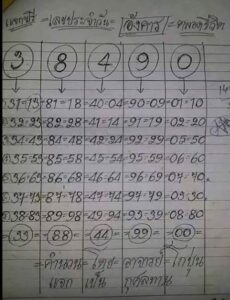 แจกฟรี=เลขประจำวัน=อังคาร=ตลอดชีวิต
3 8 4 9 0
31-13=81-18=40-04=90-09=01-10
32-23=82-28=41-14=91-19=02-20
34-43=84-48=42-24=92-29=05-50
35-53=85-58=45-54=95-59=06-60
36-63=86-68=46-64=96-69=07-70
37-73=87-78=47-74=97-79=03-30
38-83=89-98=49-94=93-39=08-80
=33=88=44=99=00=
=คำนวน=โดย=อาจารย์=
แจก เป็น